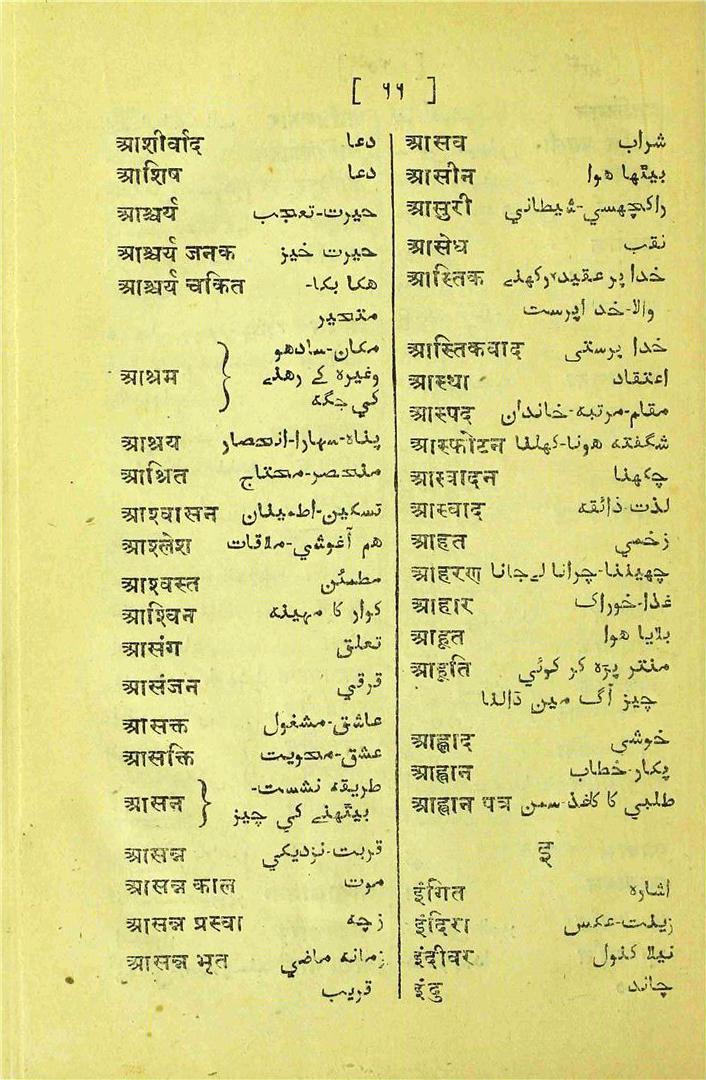 [ ११ ]
आशीर्वाद دعا
आशिष دعا
आश्चर्य حیرت-تعجب
आश्चर्य जनक حیرت خیز
आश्चर्य चकित ھکا بکا-
متحیر
مکان-سادھو
आश्रम وغیرہ کے رھنے
کی جگہ
आश्रय پناہ-سہارا-انحصار
आश्रित منحصر-محتاج
आश्वासन تسکین-اطمینان
आश्लेश ھم آغوشی-ملاقات
आश्वस्त مطمئن
आश्विन کوار کا مہینہ
आसंग تعلق
आसंजन قرقی
आसक्त عاشق-مشغول
आसक्ति عشق-محویت
طریقہ نشست-
आसन بیٹھنے کی چیز
आसन्न قربت-نزدیکی
आसन्न काल موت
आसन्न प्रस्वा زچہ
आसन्न भृत زمانہ ماضی
قریب
आसव شراب
आसीन بیٹھا ھوا
आसुरी راکچھسی-شیطانی
आसेध نقب
आस्तिक خدا پر عقیدہ رکھنے
والا-خدا پرست
आस्तिकवाद خدا پرستی
आस्था اعتقاد
आस्पद مقام-مرتبہ-خاندان
आस्फोटन شگفتہ ھونا-کھلنا
आस्वादन چکھنا
आस्वाद لذت-ذائقہ
आहत زخمی
आहरण چھیننا-چرانا لے جانا
आहार غذا-خوراک
आहूत بلایا ھوا
आहूति منتر پڑہ کر کوئی
چیز آگ میں ڈالنا
आह्लाद خوشی
आह्वान پکار-خطاب
आह्वान पत्र طلبی کا کاغذ-سمن
इ
इंगित اشارہ
इंदिरा زینت-عکس
इंदीवर نیلا کنول
इंदु چاند